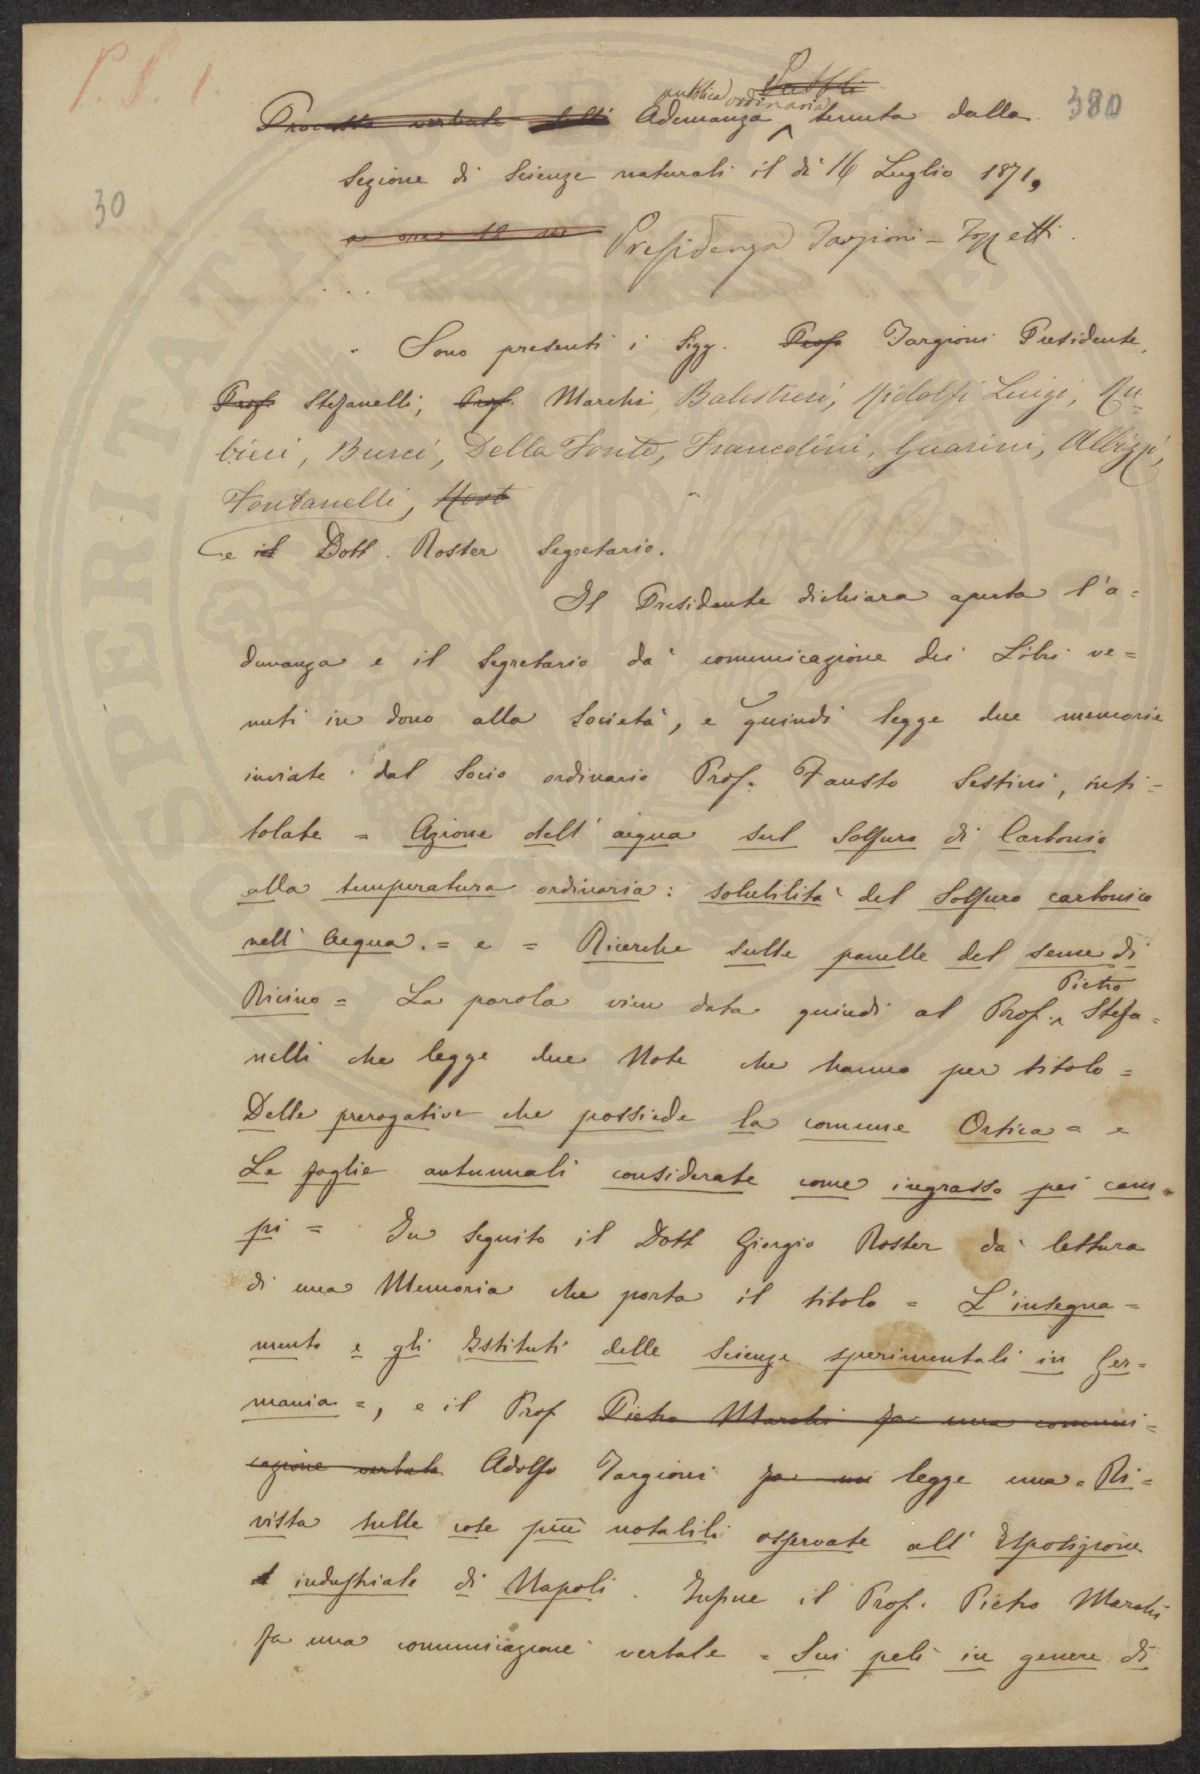 P. P. 1.
380
30
pubblica ordinaria Pubbli
Processo verbale dell' Adunanza tenuta dalla
Sezione di Scienze naturali il dì 16 Luglio 1871,
a ore 12 Presidenza Targioni-Tozzetti.
Sono presenti i Sigg. Prof. Targioni Presidente,
Prof. Stefanelli, Prof. Marchi, Balestrieri, Ridolfi Luigi, Ru=
bieri, Busci, Della Fonte, Francolini, Guarini, Albizzi,
Fontanelli, Rost
e il Dott. Roster Segretario.
Il Presidente dichiara aperta l'a=
dunanza e il Segretario dà comunicazione dei Libri ve=
nuti in dono alla Società, e quindi legge due memorie
inviate dal Socio ordinario Prof. Fausto Sestini, inti=
tolate = Azione dell' acqua sul Solfuro di Carbonio
alla temperatura ordinaria: solubilità del Solfuro carbonico
nell' Acqua. = e = Ricerche sulle panelle del seme di
Ricino = La parola vien data quindi al Prof. Pietro Stefa=
nelli che legge due Note che hanno per titolo =
Delle prerogative che possiede la comune Ortica = e
Le foglie autunnali considerate come ingrasso pei cam=
pi = In seguito il Dott Giorgio Roster dà lettura
di una Memoria che porta il titolo = L'insegna=
mento e gli Istituti delle Scienze sperimentali in Ger=
mania =, e il Prof Pietro Marchi fa una comuni=
cazione verbale Adolfo Targioni fa un legge una = Ri=
vista sulle cose più notabili osservate all' Esposizione
industriale di Napoli. Infine il Prof. Pietro Marchi
fa una comunicazione verbale = Sui peli in genere di